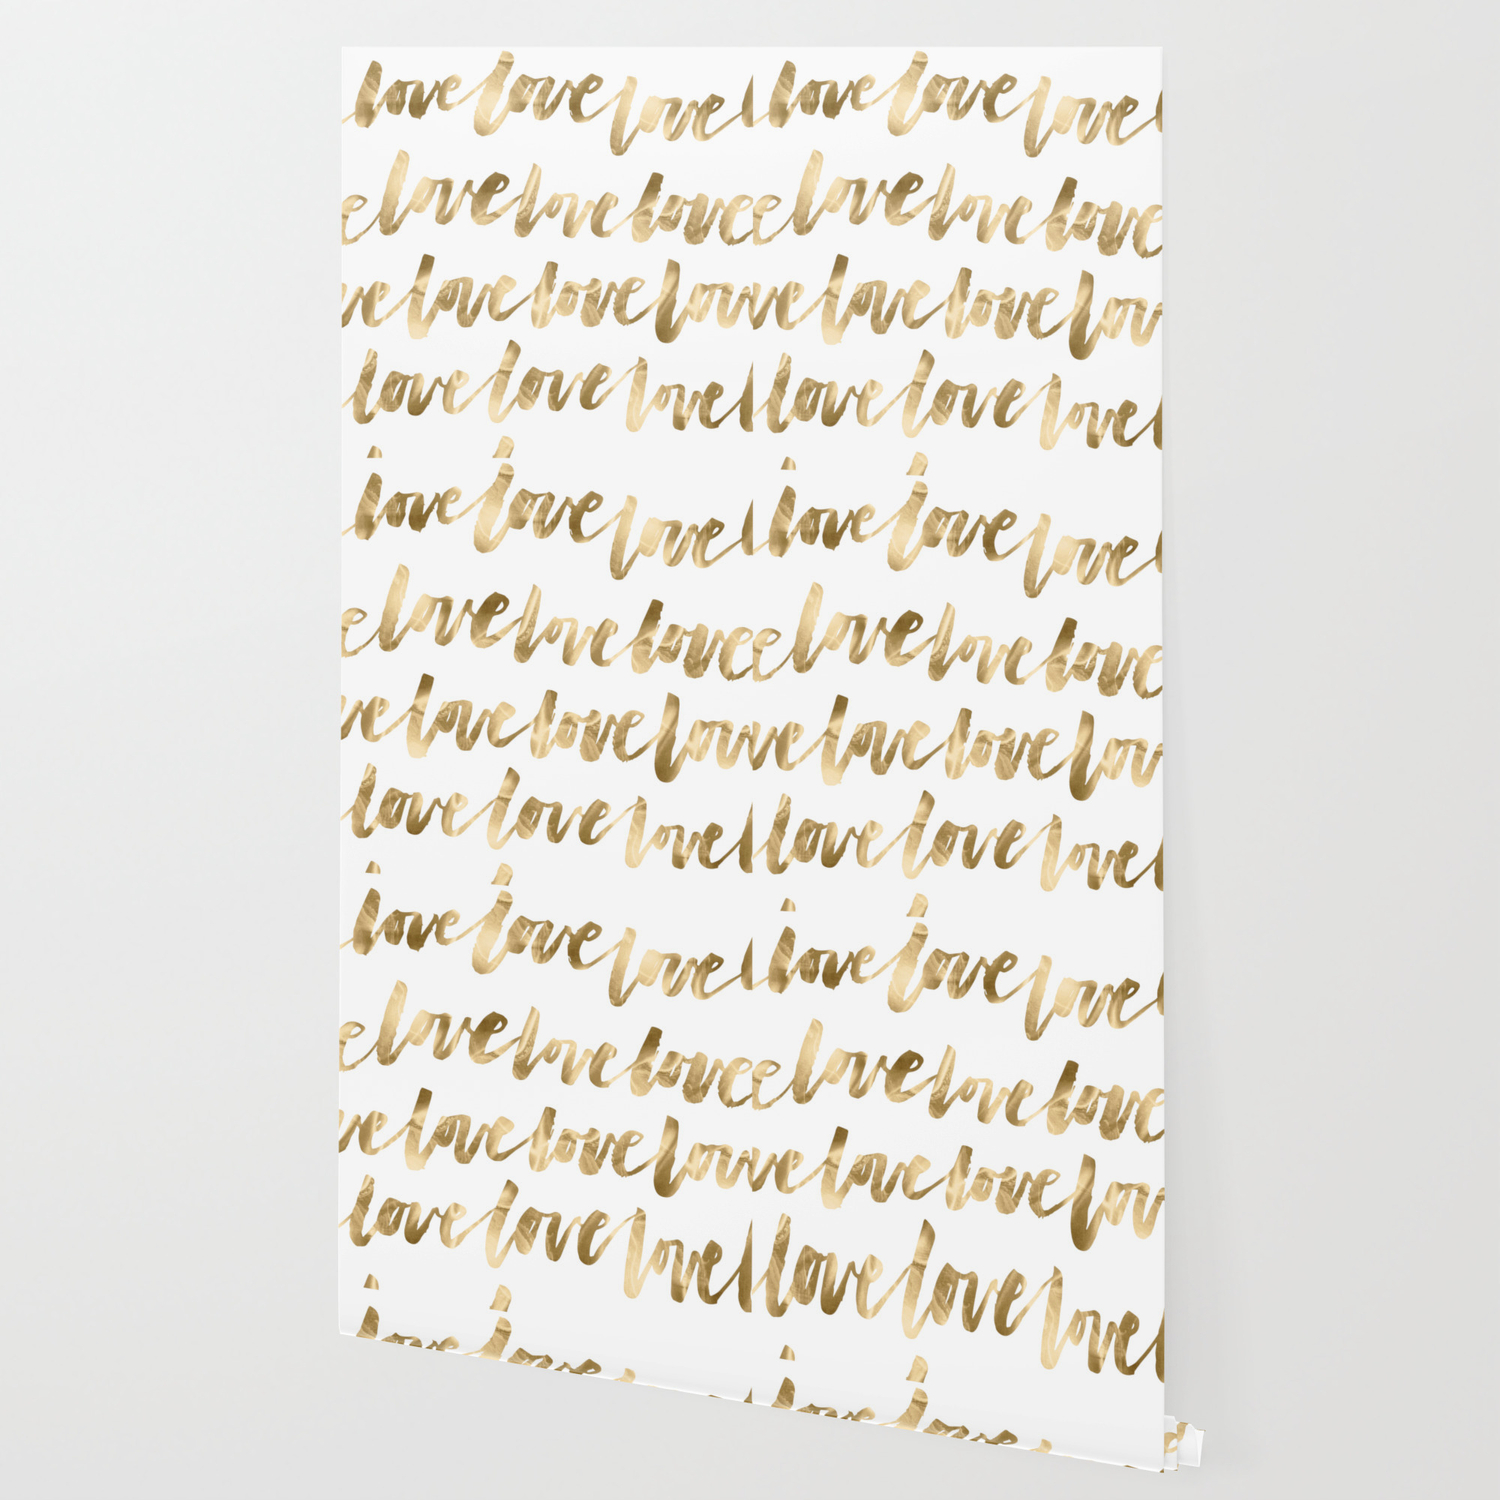 love love love l love love love l
e love love love e love love love
ve love love lov ve love love lov
love love love l love love love l
love love love l love love love l
e love love love e love love love
ve love love lov ve love love lov
love love love l love love love l
love love love l love love love l
e love love love e love love love
ve love love lov ve love love lov
love love love l love love love l
love love love love